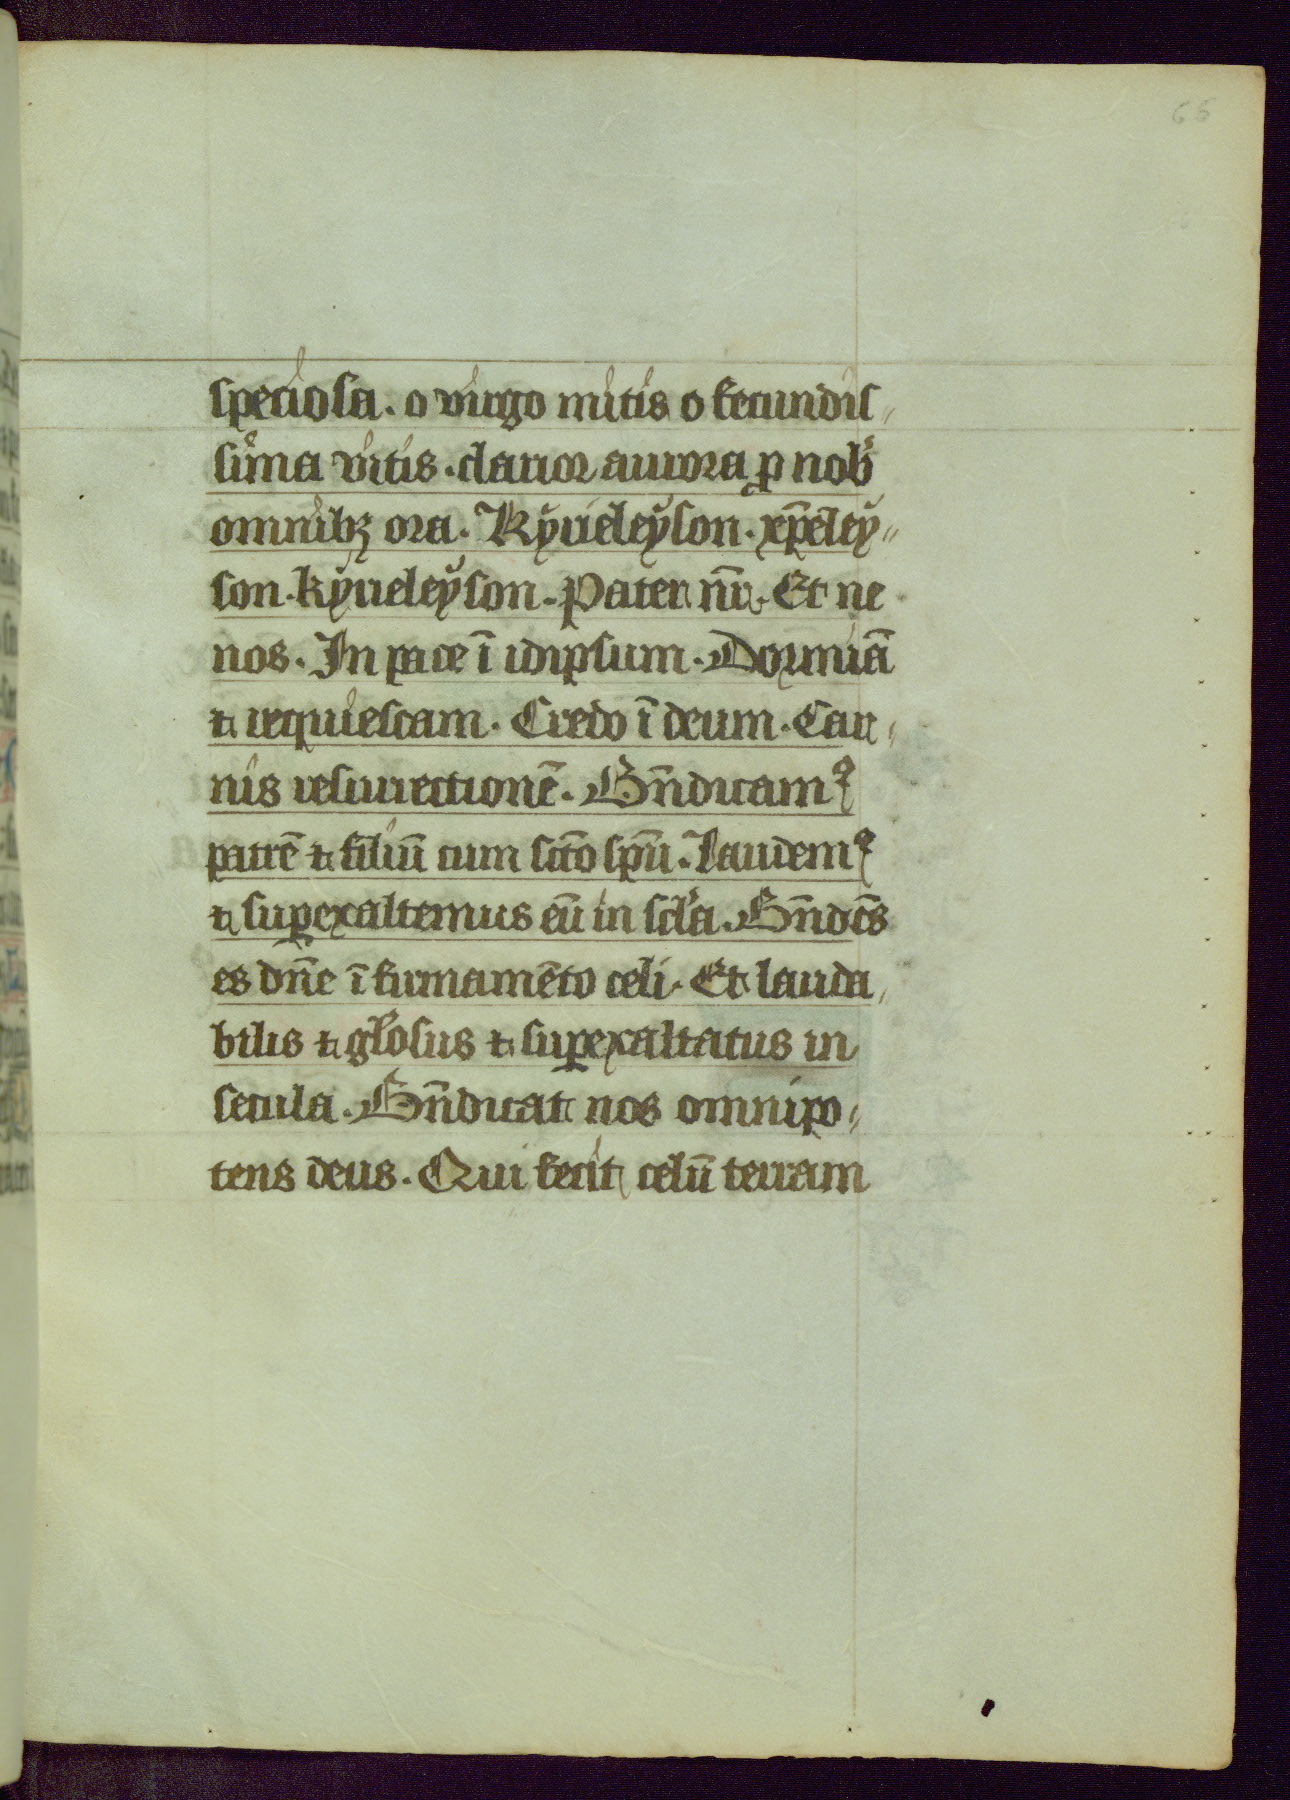 66
speciosa. o virgo mitis o fecundis„
sima vitis. clarior aurora ꝓ nob̾
omnibꝫ ora. Kyrieleyson. xp̄eley„
son. kyrieleyson. Pater nr̄. Et ne
nos. In pace ī idipsum. Dormiā
⁊ requiescam. Credo ī deum. Car„
nis resurrectionē. Bn̄dicamꝰ
patrē ⁊ filiū cum sc̄to sp̄u. Laudemꝰ
⁊ suꝑexaltemus eū in sc̄la. Bn̄dc̄s
es dn̄e ī firmamēto celi. Et lauda„
bilis ⁊ gl̄osus ⁊ suꝑexaltatus in
secula. Bn̄dicat nos omnipo„
tens deus. Qui fecit celū terram